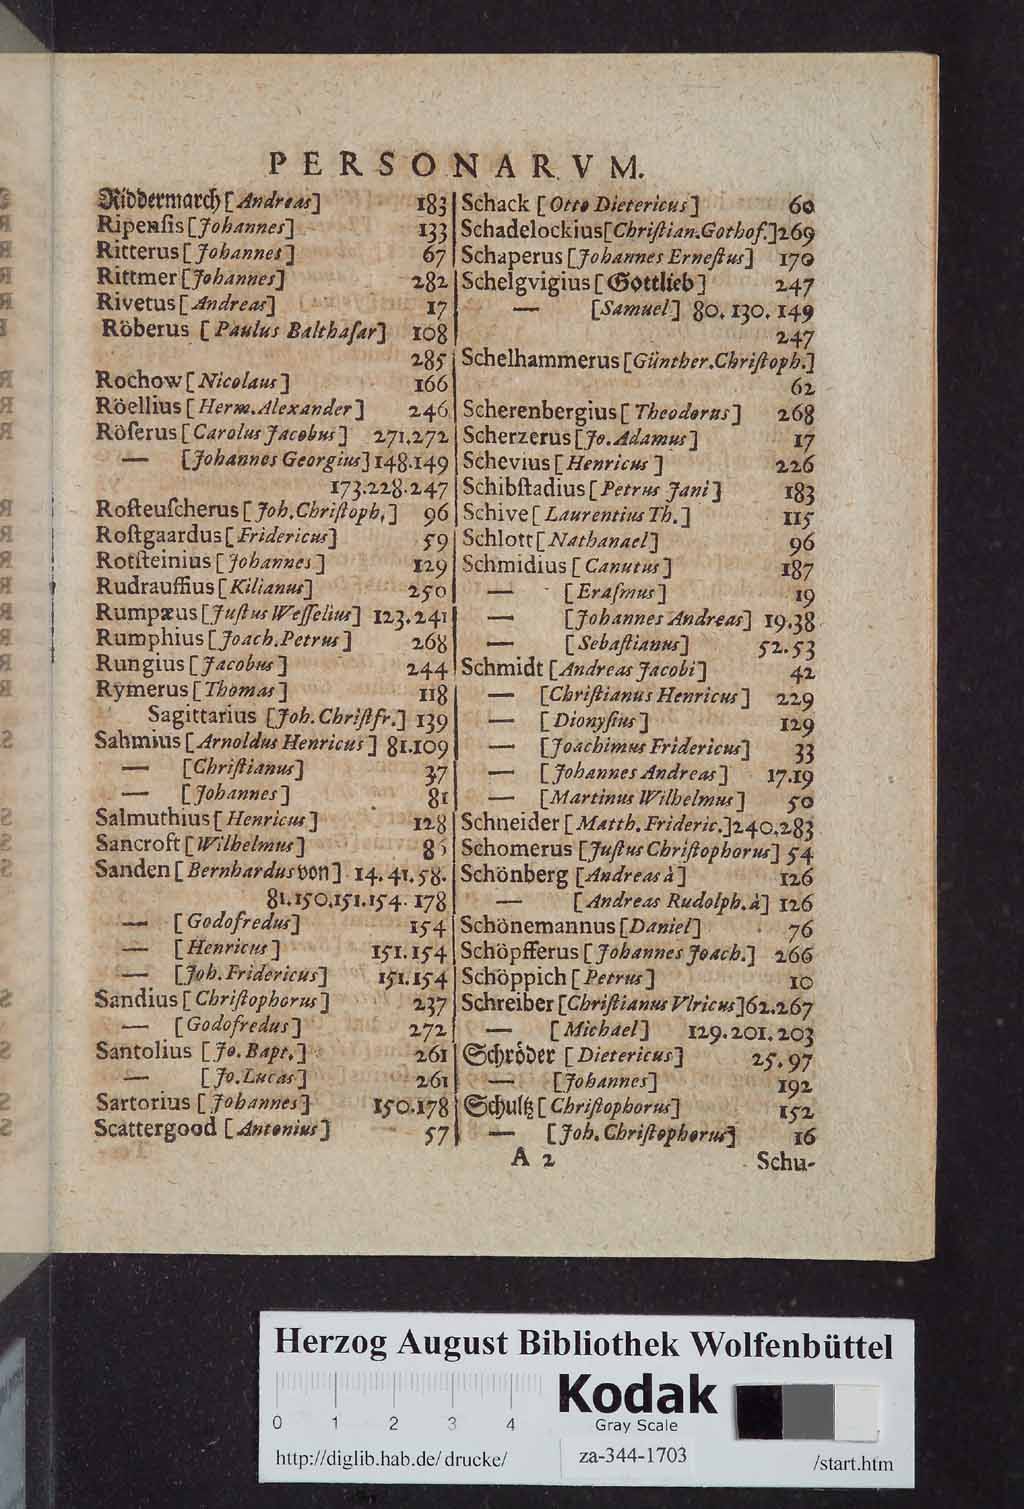 PERSONARVM.
Riddermarch [Andreas] 183
Ripenſis [Johannes] 133
Ritterus [Johannes] 67
Rittmer [Johannes] 282
Rivetus [Andreas] 17
Röberus [Paulus Balthaſar] 108
285
Rochow [Nicolaus] 166
Röellius [Herm. Alexander] 246
Röſerus [Carolus Jacobus] 271.272
— [Johannes Georgius] 148.149
173.228.247
Roſteuſcherus [Joh. Chriſtoph.] 96
Roſtgaardus [Fridericus] 59
Rotſteinius [Johannes] 129
Rudrauffius [Kilianus] 250
Rumpæus [Juſtus Weſſelius] 123.241
Rumphius [Joach. Petrus] 268
Rungius [Jacobus] 244
Rymerus [Thomas] 118
Sagittarius [Joh. Chriſtfr.] 139
Sahmius [Arnoldus Henricus] 81.109
— [Chriſtianus] 37
— [Johannes] 81
Salmuthius [Henricus] 128
Sancroft [Wilhelmus]
Sanden [Bernhardus von] 14.41.58.
81.150.151.154.178
— [Godofredus] 154
— [Henricus] 151.154
— [Joh. Fridericus] 151.154
Sandius [Chriſtophorus] 237
— [Godofredus] 272
Santolius [Jo. Bapt.] 261
— [Jo. Lucas] 261
Sartorius [Johannes] 150.178
Scattergood [Antonius] 57
Schack [Otto Dietericus] 60
Schadelockius [Chriſtian. Gothof.] 269
Schaperus [Johannes Erneſtus] 170
Schelgvigius [Gottlieb] 247
— [Samuel] 80.130.149
247
Schelhammerus [Günther. Chriſtoph.]
62
Scherenbergius [Theodorus] 268
Scherzerus [Jo. Adamus] 17
Schevius [Henricus] 226
Schibſtadius [Petrus Jani] 183
Schive [Laurentius Th.] 115
Schlott [Nathanael] 96
Schmidius [Canutus] 187
— [Eraſmus] 19
— [Johannes Andreas] 19.38
— [Sebaſtianus] 52.53
Schmidt [Andreas Jacobi] 42
— [Chriſtianus Henricus] 229
— [Dionyſius] 129
— [Joachimus Fridericus] 33
— [Johannes Andreas] 17.19
— [Martinus Wilhelmus] 50
Schneider [Matth. Frideric.] 240.283
Schomerus [Juſtus Chriſtophorus] 54
Schönberg [Andreas à] 126
— [Andreas Rudolph. à] 126
Schönemannus [Daniel] 76
Schöpfferus [Johannes Joach.] 266
Schöppich [Petrus] 10
Schreiber [Chriſtianus Vlricus] 62.267
— [Michael] 129.201.203
Schröder [Dietericus] 25.97
— [Johannes] 192
Schultz [Chriſtophorus] 152
— [Joh. Chriſtophorus] 16
A 2 Schu-
Herzog August Bibliothek Wolfenbüttel
0 1 2 3 4
Kodak
Gray Scale
http://diglib.hab.de/drucke/ za-344-1703 /start.htm